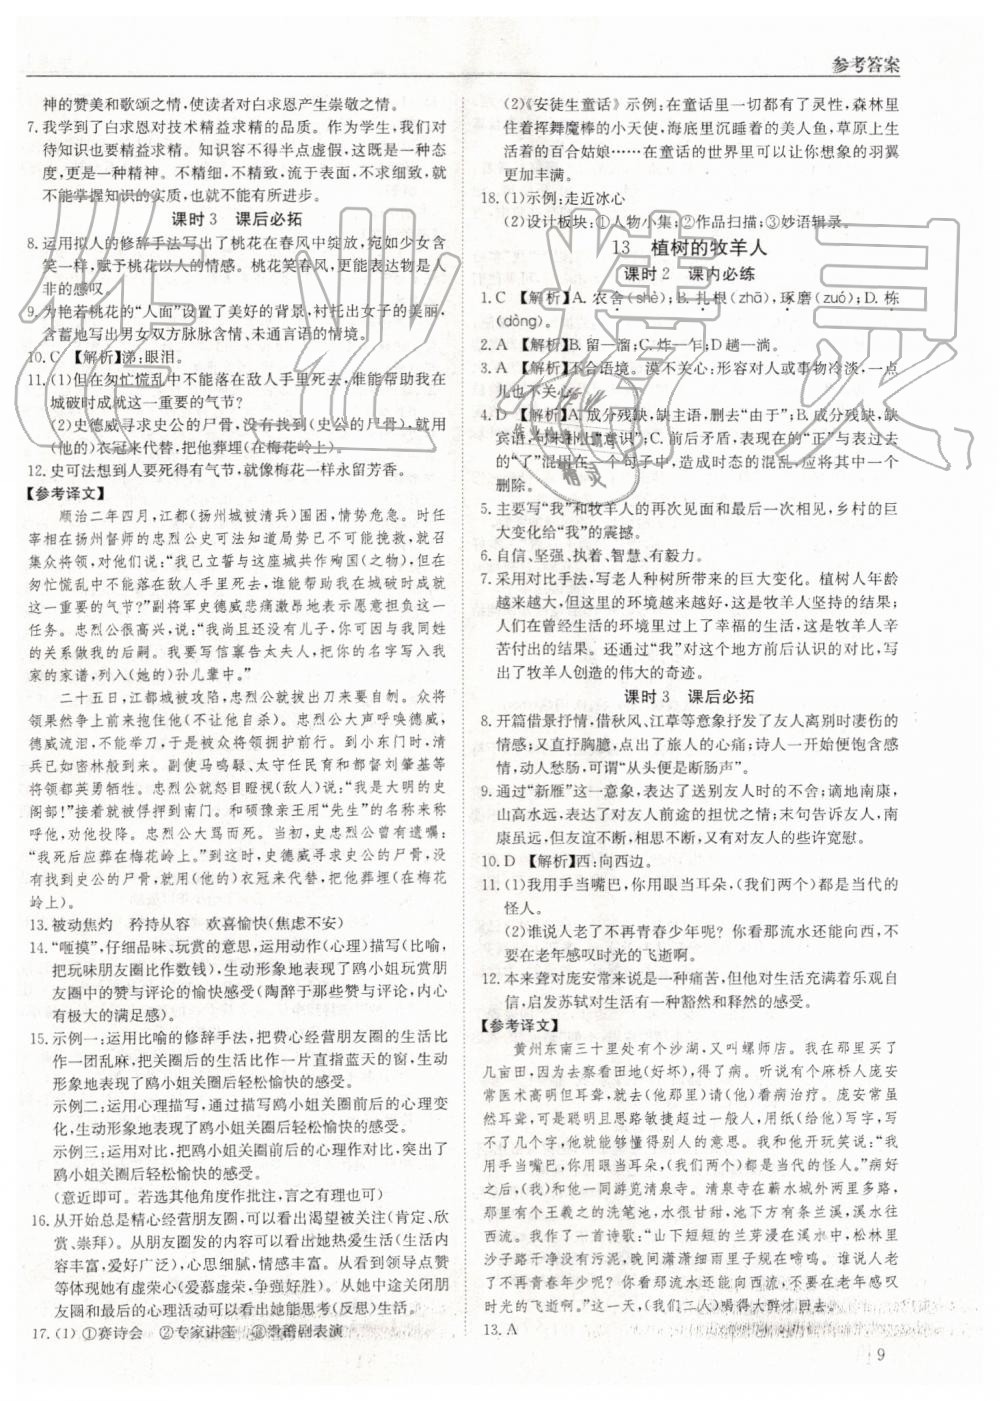 参考答案
神的赞美和歌颂之情,使读者对白求恩产生崇敬之情。
7. 我学到了白求恩对技术精益求精的品质。作为学生,我们对待知识也要精益求精。知识容不得半点虚假,这既是一种态度,更是一种精神。不精细,不精致,流于表面,不求细致,就不能掌握知识的实质,也不能有所进步。
课时 3　课后必拓
8. 运用拟人的修辞手法写出了桃花在春风中绽放,宛如少女含笑一样,赋予桃花以人的情感。桃花笑春风,更引起人是物非的感叹。
9. 为艳若桃花的“人面”设置了美好的背景,衬托出女子的美丽,含蓄地写出男女双方脉脉含情、未通言语的情境。
10. C　【解析】涕:眼泪。
11. (1)但在匆忙慌乱中不能落在敌人手里死去,谁能帮助我在城破时成就这一重要的气节?
(2)史德威寻求史公的尸骨,找不到(史公的尸骨),就用(他的)衣冠来代替,把他葬埋(在梅花岭上)。
12. 史可法想到人要死得有气节,就像梅花一样永留芳香。
【参考译文】
顺治二年四月,江都(扬州城被清兵)围困,情势危急。时任宰相在扬州督师的忠烈公史可法知道局势已不可能挽救,就召集众将领,对他们说:“我已立誓与这座城共存殉国(之物),但在匆忙慌乱中不能落在敌人手里死去,谁能帮助我在城破时成就这一重要的气节?”副将军史德威悲痛激昂地表示愿意担负这一任务。忠烈公很高兴,说:“我尚且还没有儿子,你可以因与我同姓的关系做我的后嗣。我要写信禀告太夫人,把你的名字写入我家的家谱,列入(她的)孙儿辈中。”
二十五日,江都城被攻陷,忠烈公就拔出刀来要自刎。众将领果然争上前来抱住他(不让他自杀)。忠烈公大声呼唤德威,德威流泪,不能举刀,于是被众将领拥护前行。到小东门时,清兵已如密林般到来。副使马鸣騄、太守任民育和都督刘肇基等将领都英勇牺牲。忠烈公就怒目瞪视(敌人)说:“我是大明的史阁部!”接着就被俘押到南门。和硕豫亲王用“先生”的名称来称呼他,劝他投降。忠烈公大骂而死。当初,史忠烈公曾有遗嘱:“我死后应葬在梅花岭上。”到这时,史德威寻求史公的尸骨,找不到(史公的尸骨),就用(他的)衣冠来代替,把他葬埋(在梅花岭上)。
13. 被动焦灼　矜持从容　欢喜愉快(焦虑不安)
14. “咂摸”,仔细品味、玩赏的意思,运用动作(心理)描写(比喻,把玩味朋友圈比作数钱),生动形象地表现了鸥小姐玩赏朋友圈中的赞与评论的愉快感受(陶醉于那些赞与评论,内心有极大的满足感)。
15. 示例一:运用比喻的修辞手法,把费心经营朋友圈的生活比作一团乱麻,把关圈后的生活比作一片直指蓝天的窗,生动形象地表现了鸥小姐关圈后轻松愉快的感受。
示例二:运用心理描写,通过描写鸥小姐关圈前后的心理变化,生动形象地表现了鸥小姐关圈后轻松愉快的感受。
示例三:运用对比描写,鸥小姐关圈前后的心理对比,突出了鸥小姐关圈后轻松愉快的感受。
(意近即可。若选其他角度作批注,言之有理即可)
16. 从开始总是精心经营朋友圈,可以看出渴望被关注(肯定、欣赏、崇拜)。从朋友圈发的内容可以看出她热爱生活(生活内容丰富,爱好广泛),心思细腻,情感丰富。从看到领导点赞等体现她有虚荣心(爱慕虚荣,争强好胜)。从她中途关闭朋友圈和最后的心理活动可以看出她能思考(反思)生活。
17. (1) ①赛诗会　②专家讲座　③滑稽剧表演
(2)《安徒生童话》示例:在童话里一切都有了灵性,森林里住着挥舞魔棒的小天使,海底里沉睡着的美人鱼,草原上生活着的百合姑娘……在童话的世界里可以让你想象的羽翼更加丰满。
18. (1)示例:走近冰心
(2)设计板块:①人物小集;②作品扫描;③妙语辑录。
13　植树的牧羊人
课时 2　课内必练
1. C　【解析】A. 农舍(shè);B. 扎根(zhā),琢磨(zuó);D. 栋(dòng)。
2. A　【解析】B. 留—溜;C. 炸—乍;D 趟—淌。
3. A　【解析】不合语境。漠不关心:形容对人或事物冷淡,一点儿也不关心。
4. D　【解析】A. 成分残缺,缺主语,删去“由于”;B. 成分残缺,缺宾语,句末补上“意识”;C. 前后矛盾,表现在的“正”与表过去的“了”混因在一个句子中,造成时态的混乱,应将其中一个删除。
5. 主要写“我”和牧羊人的再次见面和最后一次相见,乡村的巨大变化给“我”的震撼。
6. 自信、坚强、执着、智慧、有毅力。
7. 采用对比手法,写老人种树所带来的巨大变化。植树人年龄越来越大,但这里的环境越来越好,这是牧羊人坚持的结果;人们在曾经生活的环境里过上了幸福的生活,这是牧羊人辛苦付出的结果。还通过“我”对这个地方前后认识的对比,写出了牧羊人创造的伟大的奇迹。
课时 3　课后必拓
8. 开篇借景抒情,借秋风、江草等意象抒发了友人离别时凄伤的情感;又直抒胸臆,点出了旅人的心痛;诗人一开始便饱含感情,动人愁肠,可谓“从头便是断肠声”。
9. 通过“新雁”这一意象,表达了送别友人时的不舍;谪地南康,山高水远,表达了对友人前途的担忧之情;末句告诉友人,南康虽远,但友谊不断,相思不断,有对友人的些许宽慰。
10. D　【解析】西:向西边。
11. (1)我用手当嘴巴,你用眼当耳朵,(我们两个)都是当代的怪人。
(2)谁说人老了不再青春少年呢? 你看那流水还能西向,不要在老年感叹时光的飞逝啊。
12. 本来聋对庞安常来说是一种痛苦,但他对生活充满着乐观自信,启发苏轼对生活有一种豁然和释然的感受。
【参考译文】
黄州东南三十里处有个沙湖,又叫螺师店。我在那里买了几亩田,因为去察看田地(好坏),得了病。听说有个麻桥人庞安常医术高明但耳朵聋,就去(他那里)请(他)看病治疗。庞安常虽然耳聋,可是聪明且思路敏捷超过一般人,用纸(给他)写字,写不了几个字,他就能够懂得别人的意思。我和他开玩笑说:“我用手当嘴巴,你用眼当耳朵,(我们两个)都是当代的怪人。”病好之后,(我)和他一同游览清泉寺。清泉寺在蕲水城外两里多路,那里有王羲之的洗笔池,水很甘甜,池下方有兰溪,溪水往西流。我作了一首诗歌:“山下短短的兰芽浸在溪水中,松林里沙子路干净没有污泥,晚间潇潇细雨里子规在啼鸣。谁说人老了不再青春年少呢? 你看那流水还能西向,不要在老年感叹时光的飞逝啊。”这一天,(我们二人)喝得大醉才回去。
13. A
9